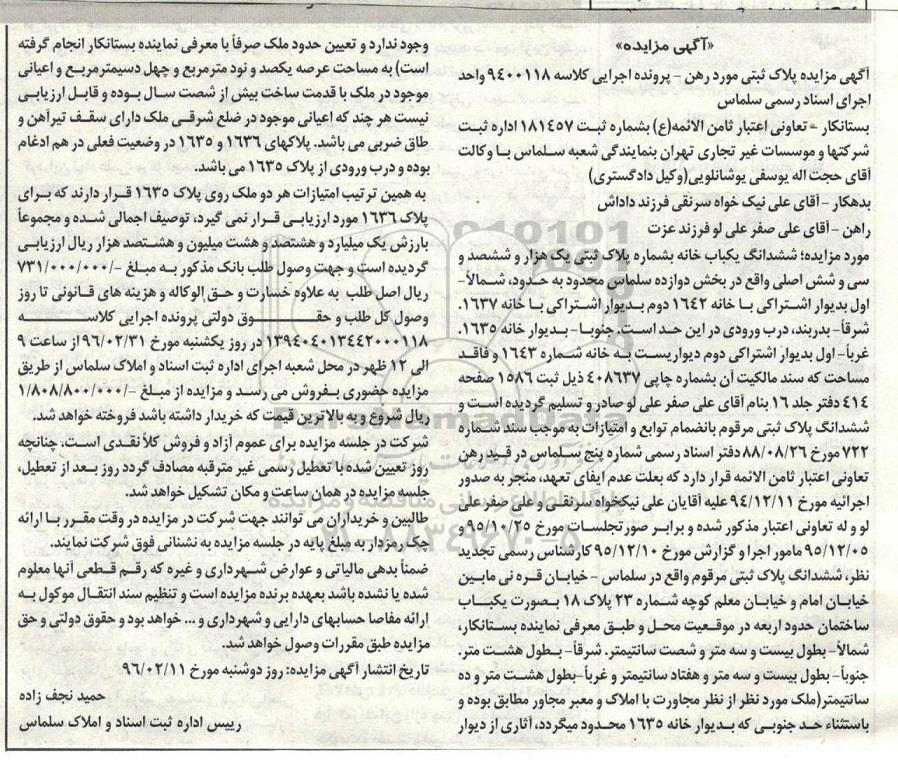 «آگهی مزایده»
آگهی مزایده پلاک ثبتی مورد رهن - پرونده اجرایی کلاسه ۹۴۰۰۱۱۸ واحد
اجرای اسناد رسمی سلماس
بستانکار - تعاونی اعتبار ثامن الائمه(ع) بشماره ثبت ۱۸۱۴۵۷ اداره ثبت
شرکتها و موسسات غیر تجاری تهران بنمایندگی شعبه سلماس با وکالت
آقای حجت اله یوسفی یوشانلویی(وکیل دادگستری)
بدهکار - آقای علی نیک خواه سرنقی فرزند داداش
راهن - آقای علی صفر علی لو فرزند عزت
مورد مزایده؛ ششدانگ یکباب خانه بشماره پلاک ثبتی یک هزار و ششصد و
سی و شش اصلی واقع در بخش دوازده سلماس محدود به حدود، شمالاً-
اول بدیوار اشتراکی با خانه ۱۶۴۲ دوم بدیوار اشتراکی با خانه ۱۶۳۷.
شرقاً- بدربند، درب ورودی در این حد است. جنوبا- بدیوار خانه ۱۶۳۵.
غرباً- اول بدیوار اشتراکی دوم دیواریست به خانه شماره ۱۶۴۳ و فاقد
مساحت که سند مالکیت آن بشماره چاپی ۴۰۸۶۳۷ ذیل ثبت ۱۵۸۶ صفحه
۴۱۴ دفتر جلد ۱۶ بنام آقای علی صفر علی لو صادر و تسلیم گردیده است و
ششدانگ پلاک ثبتی مرقوم بانضمام توابع و امتیازات به موجب سند شماره
۷۲۲ مورخ ۸۸/۰۸/۲۶ دفتر اسناد رسمی شماره پنج سلماس در قید رهن
تعاونی اعتبار ثامن الائمه قرار دارد که بعلت عدم ایفای تعهد، منجر به صدور
اجرائیه مورخ ۹۴/۱۲/۱۱ علیه آقایان علی نیکخواه سرنقی و علی صفر علی
لو و له تعاونی اعتبار مذکور شده و برابر صورتجلسات مورخ ۹۵/۱۰/۲۵ و
۹۵/۱۲/۰۵ مامور اجرا و گزارش مورخ ۹۵/۱۲/۱۰ کارشناس رسمی تجدید
نظر، ششدانگ پلاک ثبتی مرقوم واقع در سلماس - خیابان قره نی مابین
خیابان امام و خیابان معلم کوچه شماره ۲۳ پلاک ۱۸ بصورت یکباب
ساختمان حدود اربعه در موقعیت محل و طبق معرفی نماینده بستانکار،
شمالاً- بطول بیست و سه متر و شصت سانتیمتر. شرقاً- بطول هشت متر.
جنوباً- بطول بیست و سه متر و هفتاد سانتیمتر و غرباً-بطول هشت متر و ده
سانتیمتر(ملک مورد نظر از نظر مجاورت با املاک و معبر مجاور مطابق بوده و
باستثناء حد جنوبی که بدیوار خانه ۱۶۳۵ محدود میگردد، آثاری از دیوار
وجود ندارد و تعیین حدود ملک صرفاً با معرفی نماینده بستانکار انجام گرفته
است) به مساحت عرصه یکصد و نود مترمربع و چهل دسیمترمربع و اعیانی
موجود در ملک با قدمت ساخت بیش از شصت سال بوده و قابل ارزیابی
نیست هر چند که اعیانی موجود در ضلع شرقی ملک دارای سقف تیرآهن و
طاق ضربی می باشد. پلاکهای ۱۶۳۶ و ۱۶۳۵ در وضعیت فعلی در هم ادغام
بوده و درب ورودی از پلاک ۱۶۳۵ می باشد.
به همین ترتیب امتیازات هر دو ملک روی پلاک ۱۶۳۵ قرار دارند که برای
پلاک ۱۶۳۶ مورد ارزیابی قرار نمی گیرد، توصیف اجمالی شده و مجموعاً
بارزش یک میلیارد و هشتصد و هشت میلیون و هشتصد هزار ریال ارزیابی
گردیده است و جهت وصول طلب بانک مذکور به مبلغ -/۷۳۱/۰۰۰/۰۰۰
ریال اصل طلب به علاوه خسارت و حق الوکاله و هزینه های قانونی تا روز
وصول کل طلب و حقوق دولتی پرونده اجرایی کلاسه
۱۳۹۴۰۴۰۱۳۴۴۲۰۰۰۱۱۸ در روز یکشنبه مورخ ۹۶/۰۲/۳۱ از ساعت ۹
الی ۱۲ ظهر در محل شعبه اجرای اداره ثبت اسناد و املاک سلماس از طریق
مزایده حضوری بفروش می رسد و مزایده از مبلغ -/۱/۸۰۸/۸۰۰/۰۰۰
ریال شروع و به بالاترین قیمت که خریدار داشته باشد فروخته خواهد شد.
شرکت در جلسه مزایده برای عموم آزاد و فروش کلاً نقدی است. چنانچه
روز تعیین شده با تعطیل رسمی غیر مترقبه مصادف گردد روز بعد از تعطیل،
جلسه مزایده در همان ساعت و مکان تشکیل خواهد شد.
طالبین و خریداران می توانند جهت شرکت در مزایده در وقت مقرر با ارائه
چک رمزدار به مبلغ پایه در جلسه مزایده به نشانی فوق شرکت نمایند.
ضمناً بدهی مالیاتی و عوارض شهرداری و غیره که رقم قطعی آنها معلوم
شده یا نشده باشد بعهده برنده مزایده است و تنظیم سند انتقال موکول به
ارائه مفاصا حسابهای دارایی و شهرداری و ... خواهد بود و حقوق دولتی و حق
مزایده طبق مقررات وصول خواهد شد.
تاریخ انتشار آگهی مزایده: روز دوشنبه مورخ ۹۶/۰۲/۱۱
حمید نجف زاده
رییس اداره ثبت اسناد و املاک سلماس